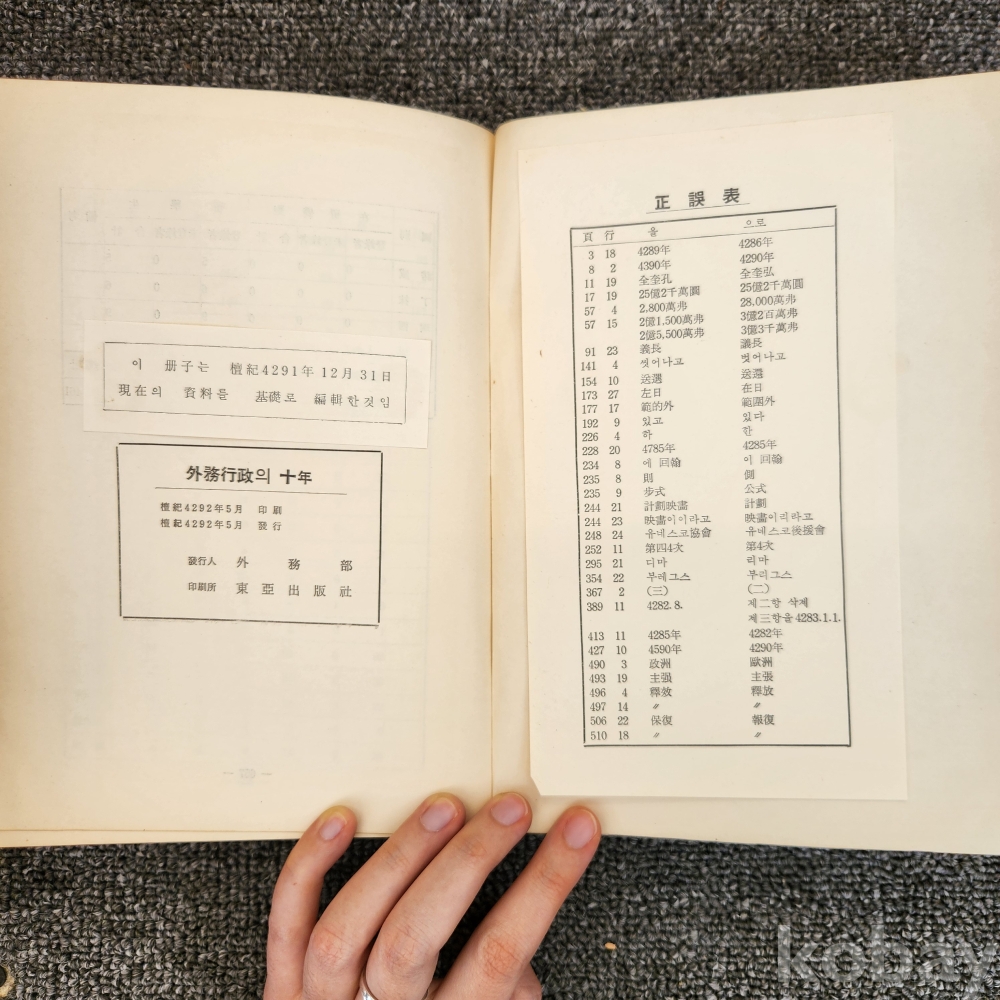 이 册子는 檀紀4291年 12月 31日
現在의 資料를 基礎로 編輯한것임
外務行政의 十年
檀紀4292年5月 印刷
檀紀4292年5月 發行
發行人 外務部
印刷所 東亞出版社
正誤表
頁 行 을 으로
3 18 4289年 4286年
8 2 4390年 4290年
11 19 全奎孔 全奎弘
17 19 25億2千萬圓 25億2千萬圜
57 4 2,800萬弗 28.000萬弗
57 15 2億1,500萬弗 3億2百萬弗
2億5,500萬弗 3億3千萬弗
91 23 義長 議長
141 4 씻어나고 벗어나고
154 10 送還
173 27 左日 在日
177 17 範的外 範圍外
192 9 있고 있다
226 4 하 한
228 20 4785年 4285年
234 8 에 回翰 이 回翰
235 8 則 側
235 9 步式 公式
244 21 計劃映畵 計劃
244 23 映畵이이라고 映畵이리라고
248 24 유네스코協會 유네스코後援會
252 11 第四4次 第4次
295 21 디마 리마
354 22 부레그스 부리그스
367 2 (三) (二)
389 11 4282.8. 제二항 삭제
제三항을4283.1.1.
413 11 4285年 4282年
427 10 4590年 4290年
490 3 政洲 歐洲
493 19 主强 主張
496 4 釋效 釋放
497 14 〃 〃
506 22 保復 報復
510 18 〃 〃
kobay